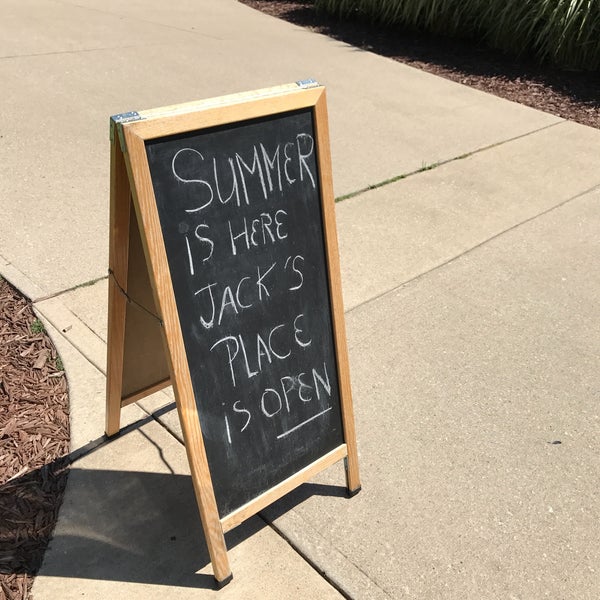 SUMMER
iS HERE
JACK'S
PLACE
iS OPEN